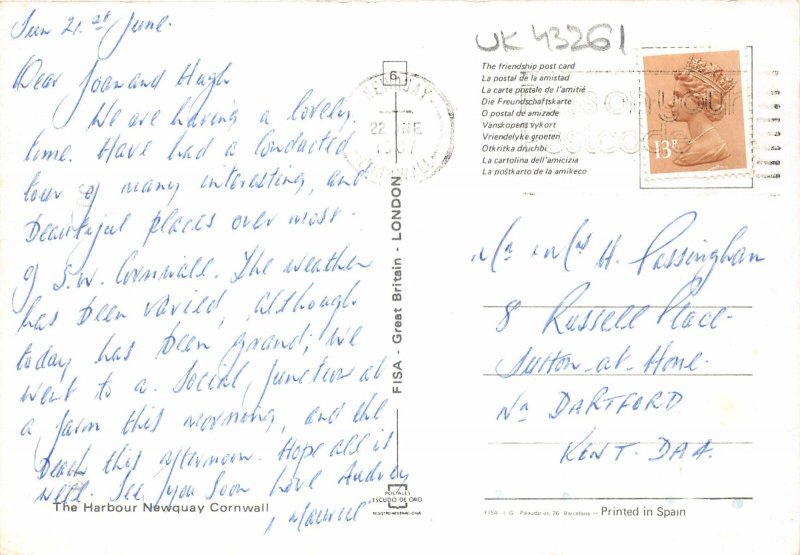 Sun 21.st June.
Dear Joan and Hugh
We are having a lovely
time. Have had a conducted
tour of many interesting, and
beautiful places over most
of S.W. Cornwall. The weather
has been varied, although
today has been grand; we
went to a Social function at
a farm this morning, and the
beach this afternoon. Hope all is
well. See you Soon Love Audrey
, Maurice
The Harbour Newquay Cornwall
6
FISA - Great Britain - LONDON
POSTALES
ESCUDO DE ORO
UK 43261
The friendship post card
La postal de la amistad
La carte postale de l'amitié
Die Freundschaftskarte
O postal de amizade
Vänskapens vykort
Vriendelyke groeten
Otkritka druchbi
La cartolina dell'amicizia
La poŝtkarto de la amikeco
NEWQUAY
22 JNE
1987
CORNWALL
on your
postcode
13P
Mr & Mrs H. Passingham
8 Russell Place
Sutton-at-Hone.
Nr DARTFORD
KENT. DAA.
FISA - I. G. Palaudarias, 26 Barcelona - Printed in Spain